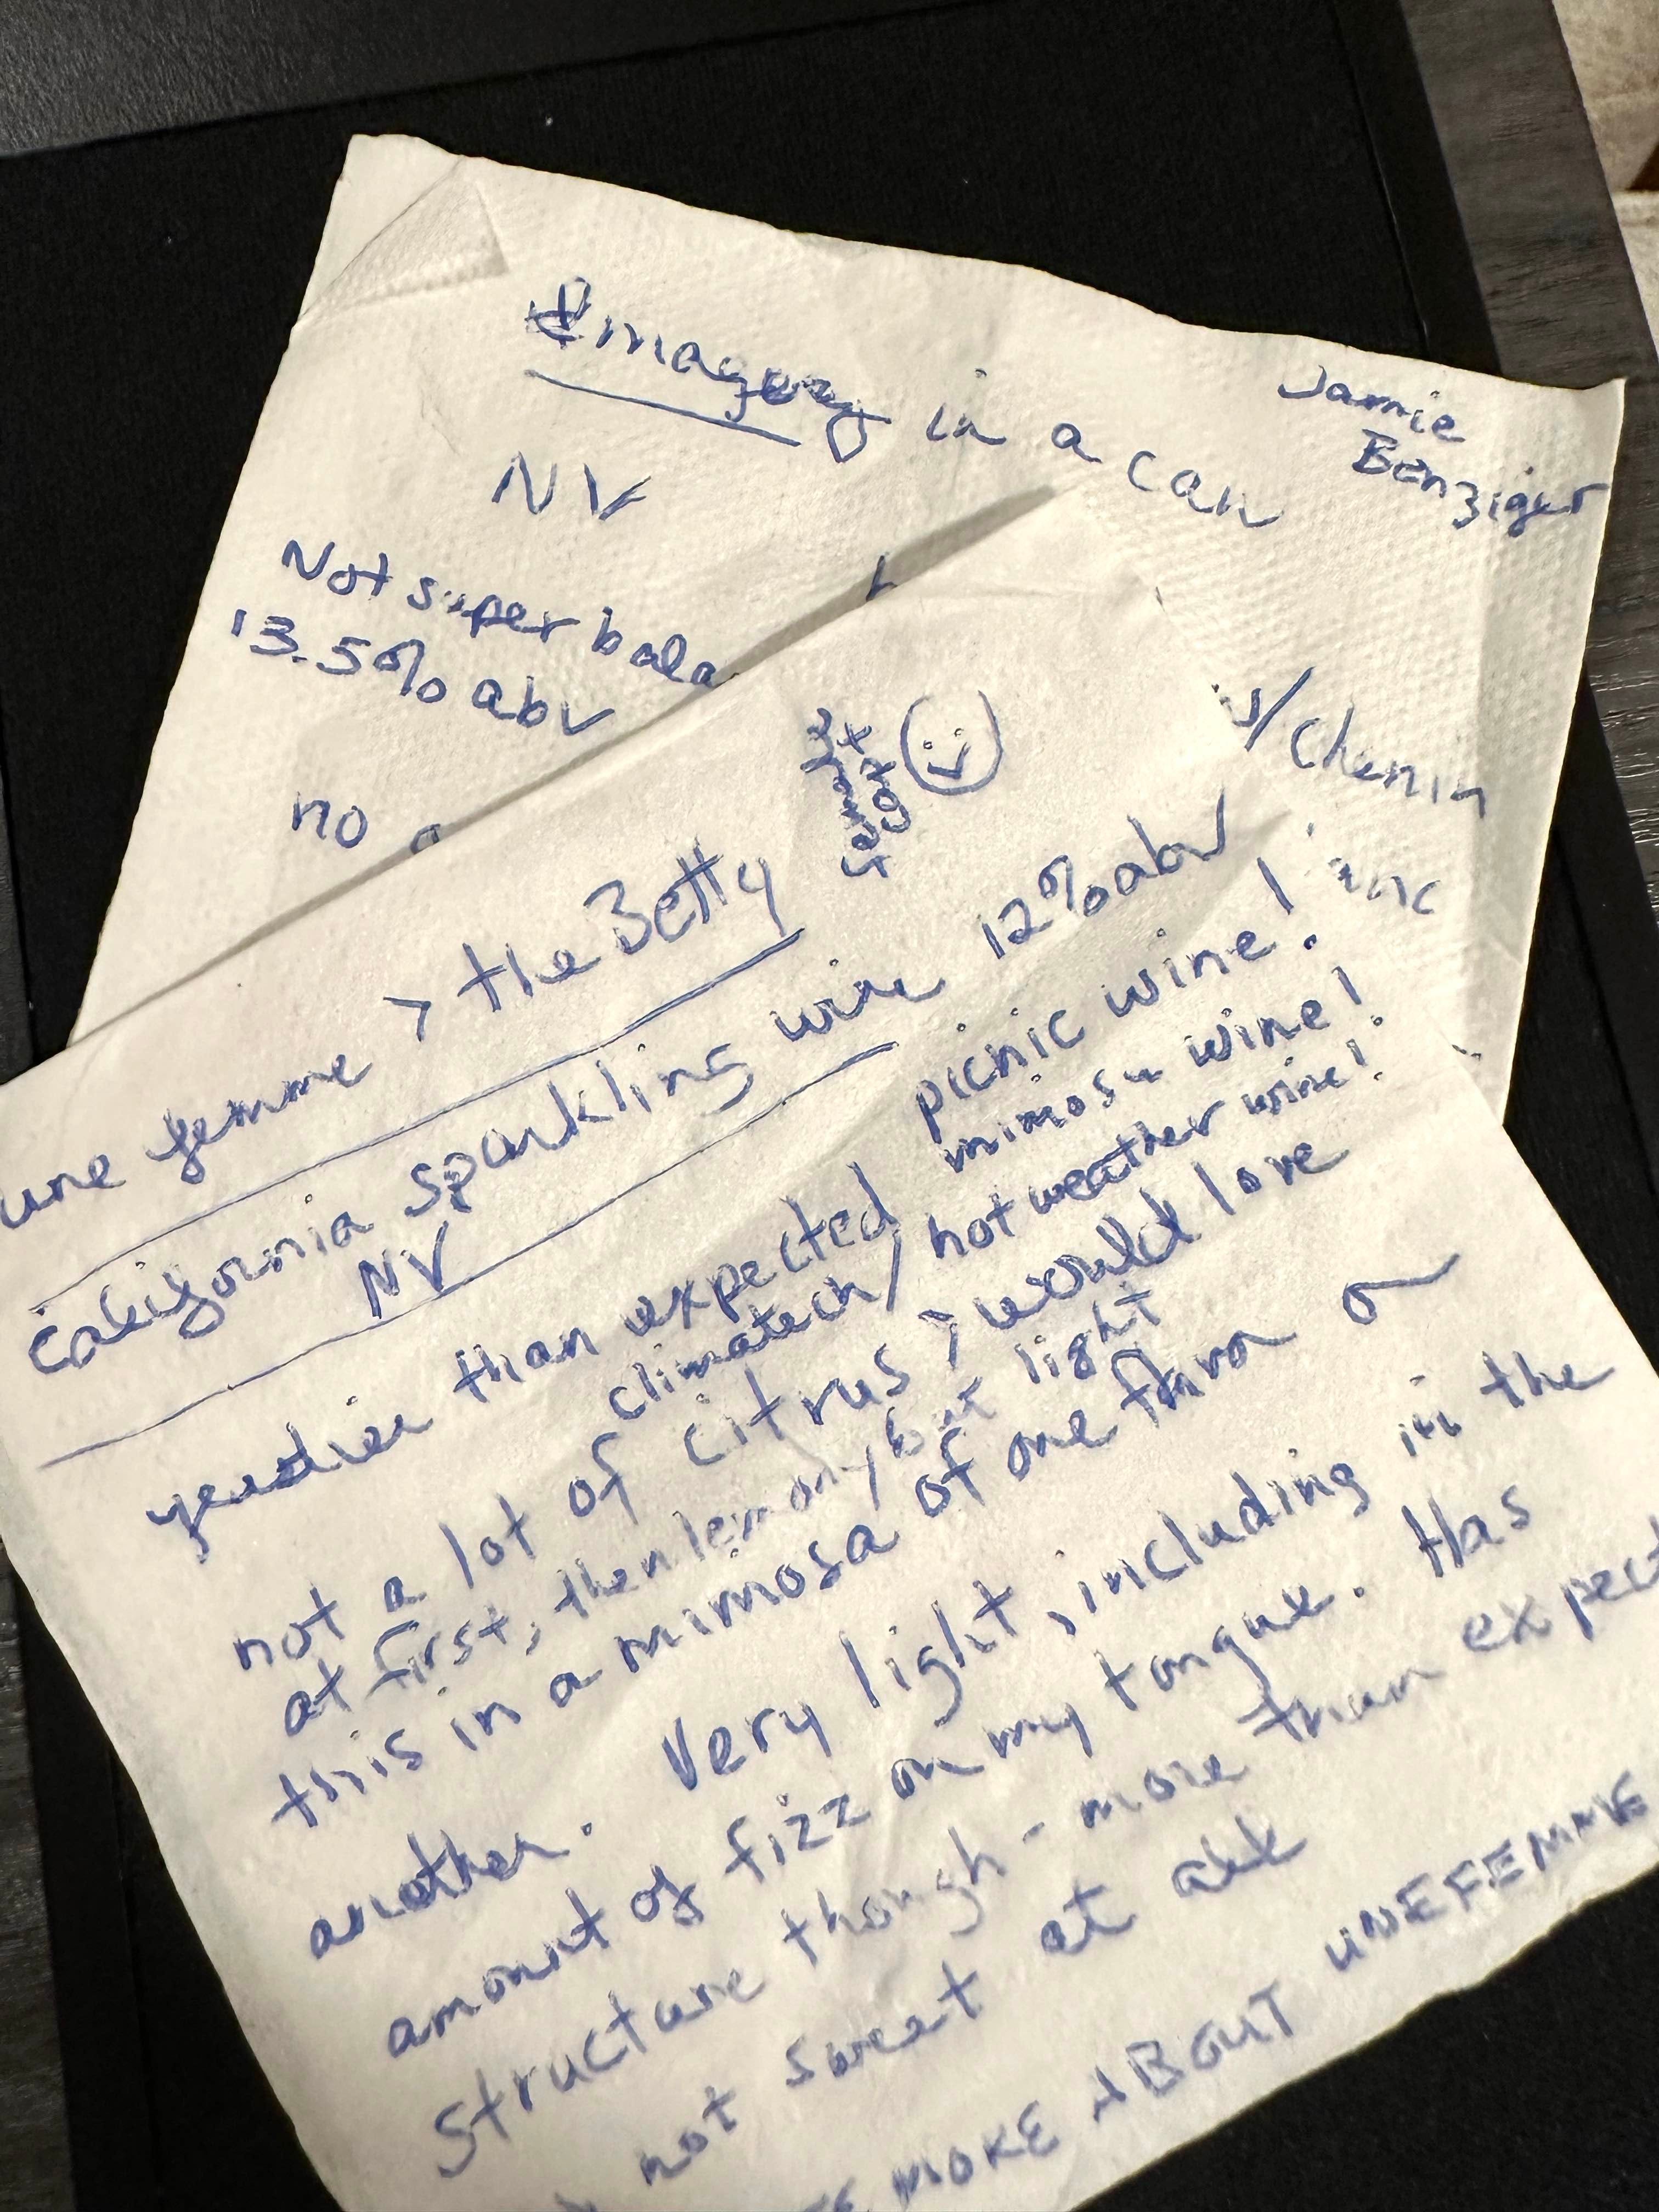 Imagery in a can
Jamie
Benziger
NV
Not super bala
13.5% abv
no
/Chenin
inc
female
une femme > the Betty
California sparkling wine 12% abv
NV
picnic wine!
mimosa wine!
than expected
climatech/hot weather wine!
not a lot of citrus > would love
at first, then lemony/but light
this in a mimosa of one flavor or
another. Very light, including in the
amount of fizz on my tongue. Has
structure though - more than expect
not sweet at all
MORE ABOUT UNEFEMME